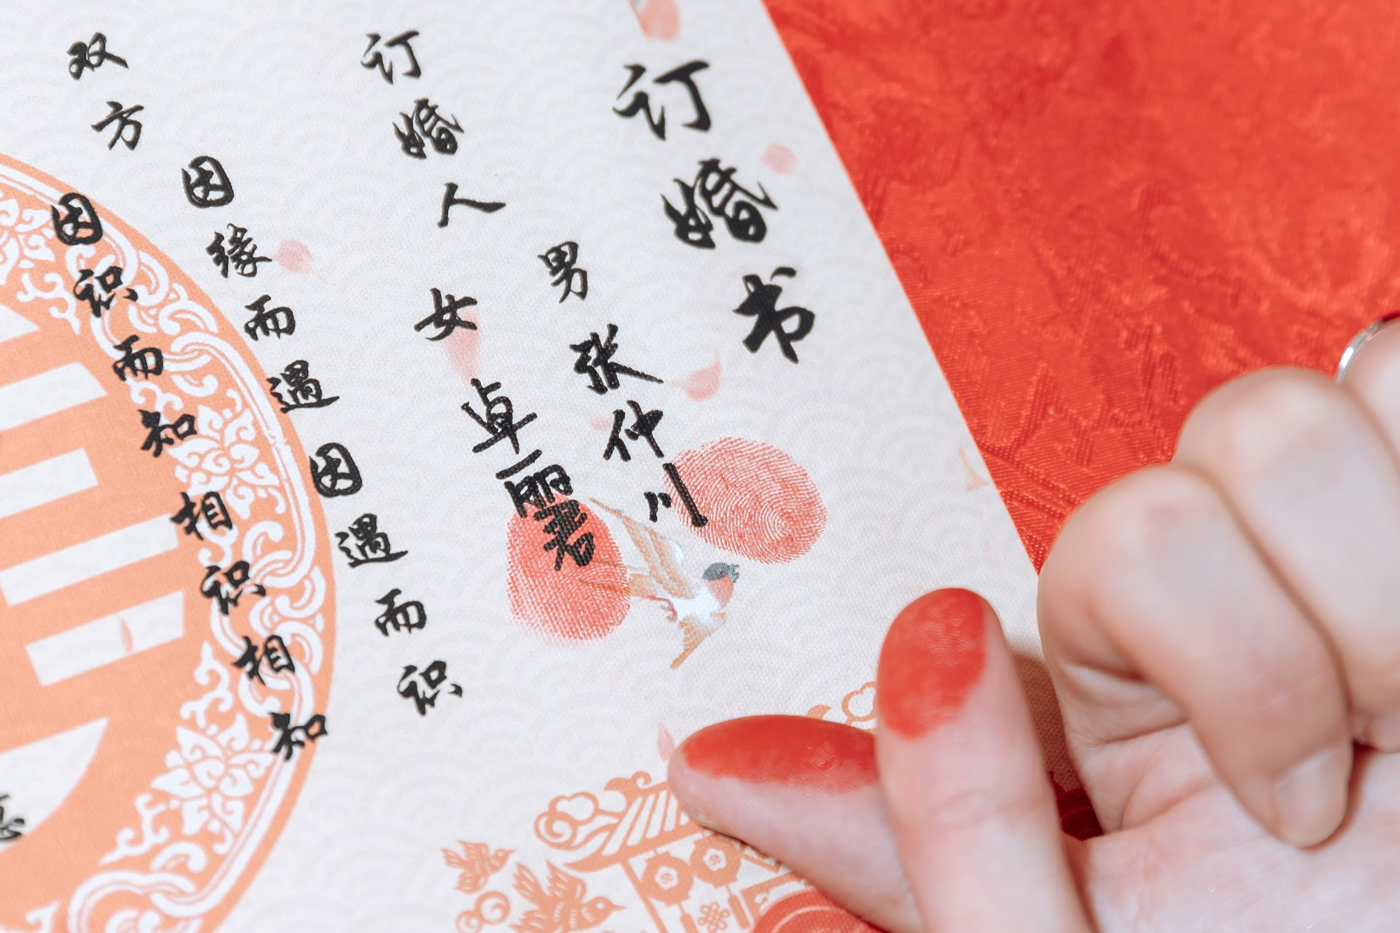 订婚书
订婚人
男 张仲川
女 卓丽君
双方
因缘而遇因遇而识
因识而知相识相知